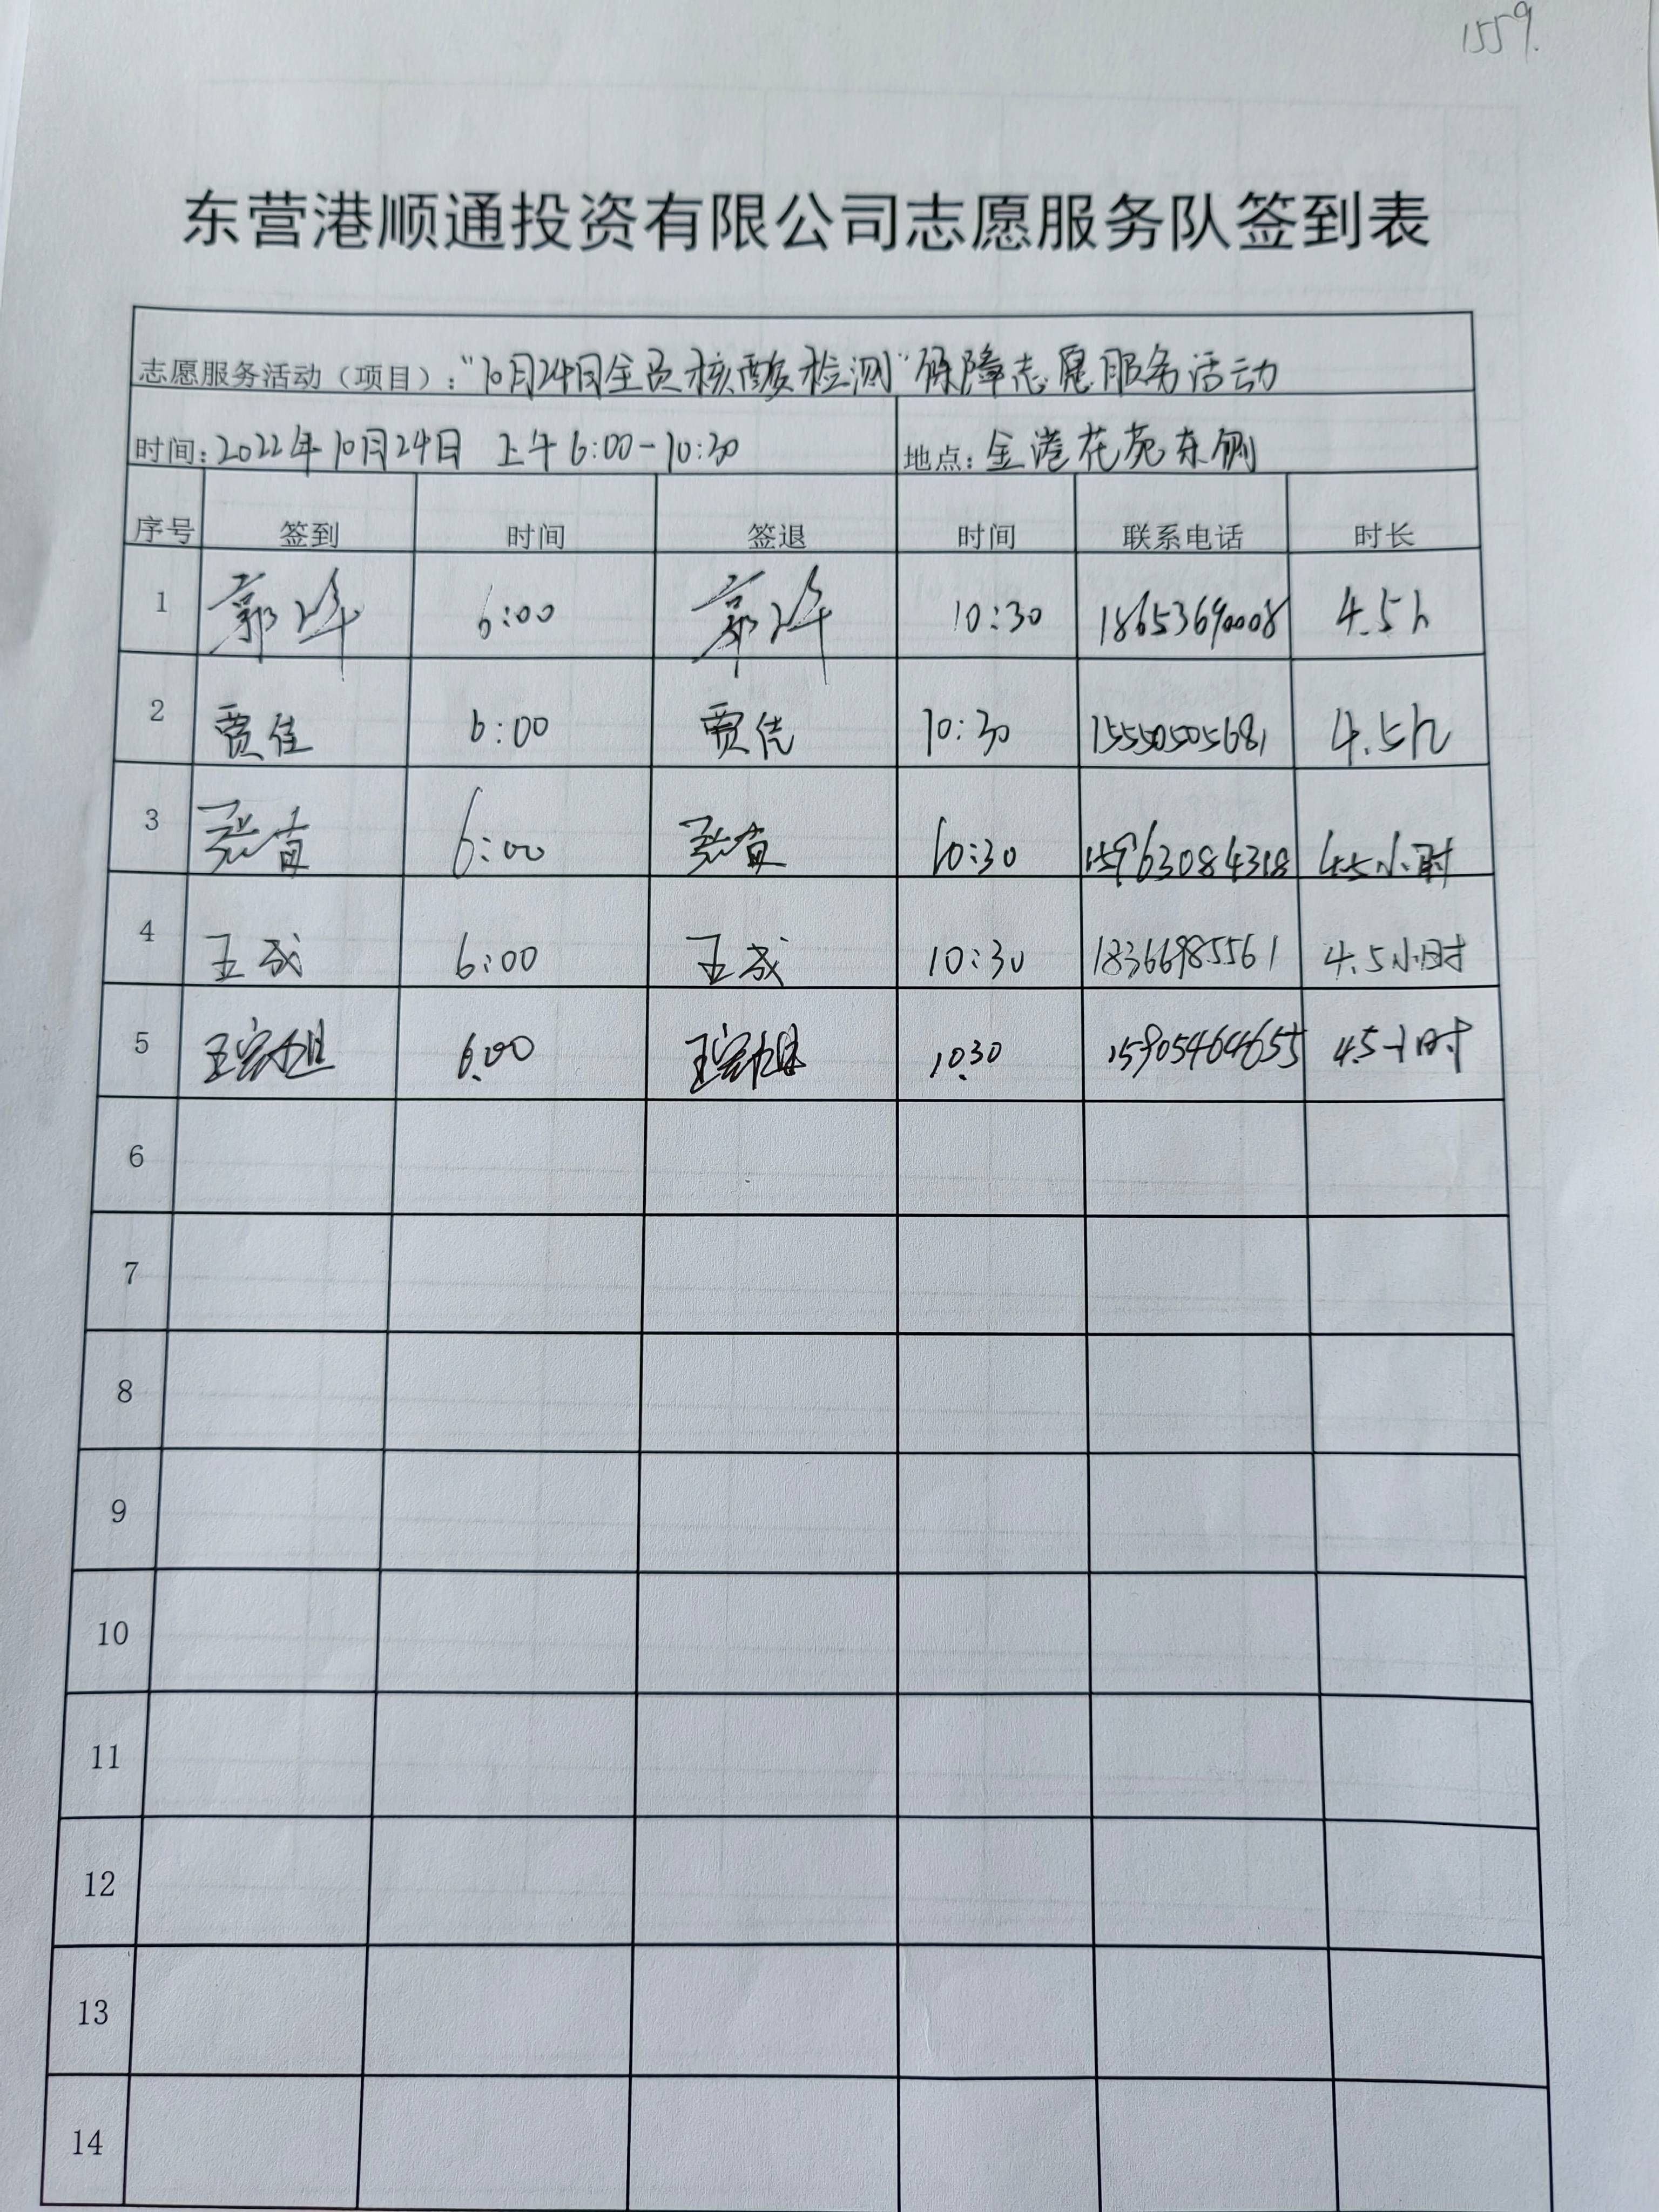 1559.
东营港顺通投资有限公司志愿服务队签到表
志愿服务活动（项目）：“10月24日全员核酸检测”保障志愿服务活动
时间：2022年10月24日 上午6:00-10:30 地点：金港花苑东侧
序号 签到 时间 签退 时间 联系电话 时长
1 郭 6:00 郭 10:30 18653690008 4.5h
2 贾佳 6:00 贾佳 10:30 15550505681 4.5h
3 张 6:00 张 10:30 15963084318 4.5小时
4 王成 6:00 王成 10:30 18366985561 4.5小时
5 王 6:00 王 10:30 15905464655 4.5小时
6
7
8
9
10
11
12
13
14